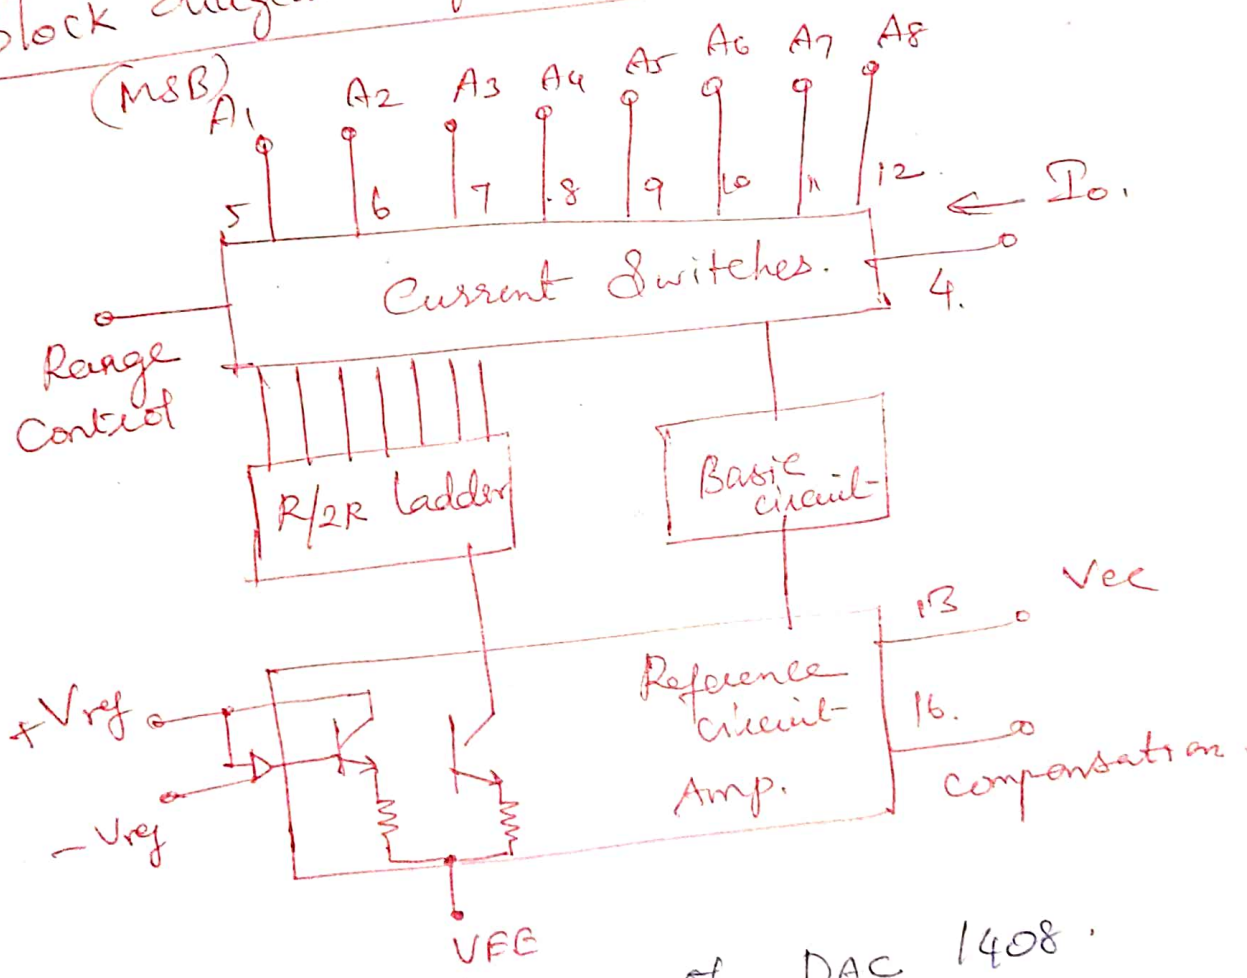 block diagram
(MSB)
A1 A2 A3 A4 A5 A6 A7 A8
5 6 7 8 9 10 11 12
Io.
Current Switches.
4.
Range
Control
R/2R ladder
Basic
circuit
13 Vcc
+Vref
Reference
circuit
Amp.
16.
Compensation.
-Vref
VEE
of DAC 1408.